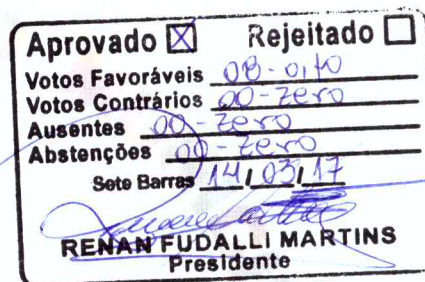 Aprovado ☒ Rejeitado ☐
Votos Favoráveis 08-oito
Votos Contrários 00-zero
Ausentes 00-zero
Abstenções 00-zero
Sete Barras 14/03/17
RENAN FUDALLI MARTINS
Presidente